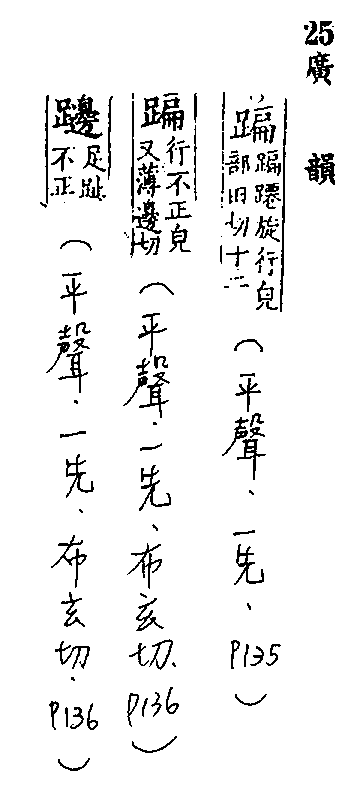 25廣韻
蹁蹁蹮旋行皃部田切十二(平聲、一先、P135)
蹁行不正皃又薄邊切(平聲、一先、布玄切、P136)
邊足趾不正(平聲、一先、布玄切、P136)